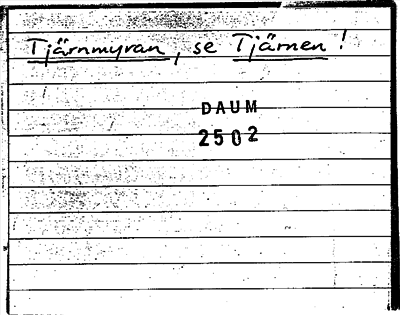 Tjärnmyran, se Tjärnen!
DAUM
2502